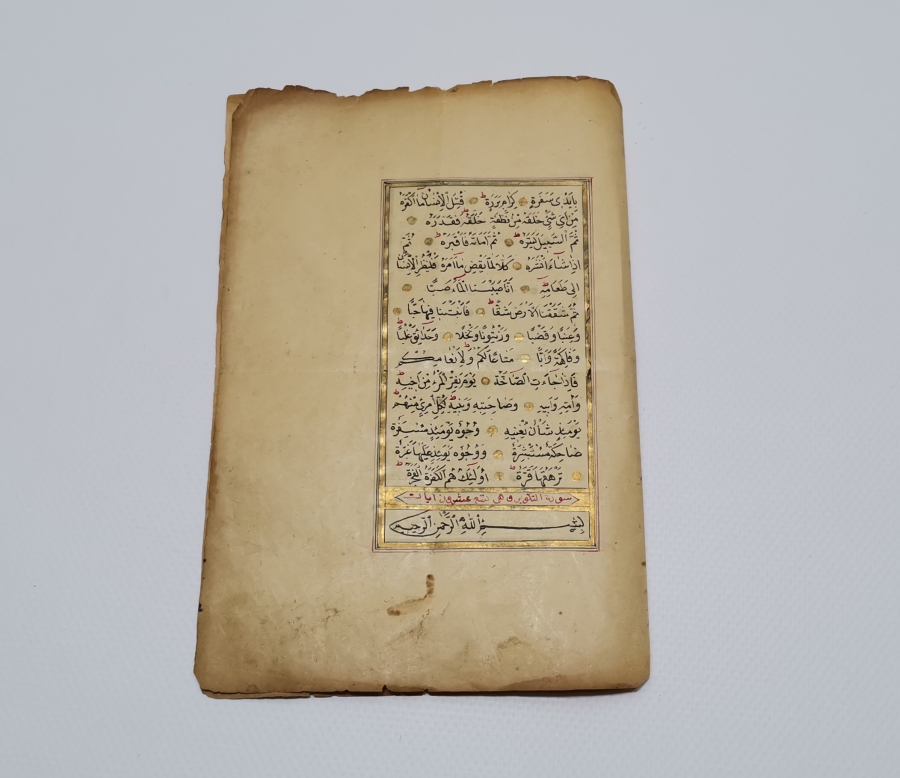 بِاَيْدِى سَفَرَةٍ كِرَامٍ بَرَرَةٍ قُتِلَ الْاِنْسَانُ مَا اَكْفَرَهُ
مِنْ اَىِّ شَىْءٍ خَلَقَهُ مِنْ نُطْفَةٍ خَلَقَهُ فَقَدَّرَهُ
ثُمَّ السَّبِيلَ يَسَّرَهُ ثُمَّ اَمَاتَهُ فَاَقْبَرَهُ ثُمَّ
اِذَا شَاءَ اَنْشَرَهُ كَلَّا لَمَّا يَقْضِ مَا اَمَرَهُ فَلْيَنْظُرِ الْاِنْسَانُ
اِلَى طَعَامِهِ اَنَّا صَبَبْنَا الْمَاءَ صَبًّا
ثُمَّ شَقَقْنَا الْاَرْضَ شَقًّا فَاَنْبَتْنَا فِيهَا حَبًّا
وَعِنَبًا وَقَضْبًا وَزَيْتُونًا وَنَخْلًا وَحَدَائِقَ غُلْبًا
وَفَاكِهَةً وَاَبًّا مَتَاعًا لَكُمْ وَلِاَنْعَامِكُمْ
فَاِذَا جَاءَتِ الصَّاخَّةُ يَوْمَ يَفِرُّ الْمَرْءُ مِنْ اَخِيهِ
وَاُمِّهِ وَاَبِيهِ وَصَاحِبَتِهِ وَبَنِيهِ لِكُلِّ امْرِئٍ مِنْهُمْ
يَوْمَئِذٍ شَأْنٌ يُغْنِيهِ وُجُوهٌ يَوْمَئِذٍ مُسْفِرَةٌ
ضَاحِكَةٌ مُسْتَبْشِرَةٌ وَوُجُوهٌ يَوْمَئِذٍ عَلَيْهَا غَبَرَةٌ
تَرْهَقُهَا قَتَرَةٌ اُولٰئِكَ هُمُ الْكَفَرَةُ الْفَجَرَةُ
سورة التكوير وهى عشرون ايات
بِسْمِ اللّٰهِ الرَّحْمٰنِ الرَّحِيمِ